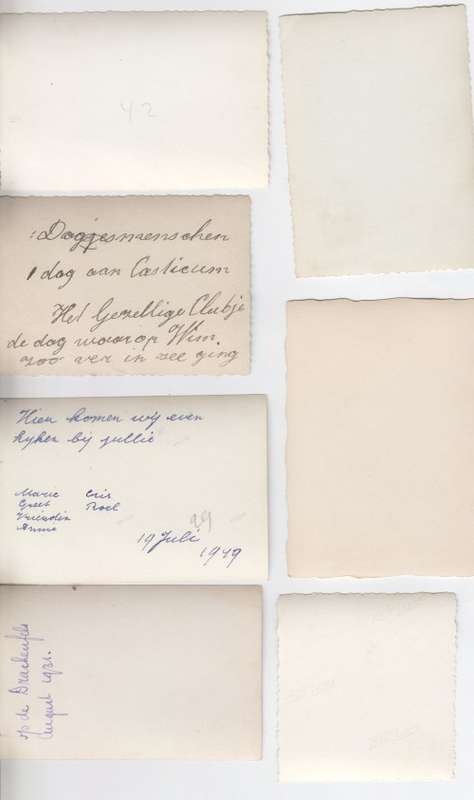 42
: Dagjesmenschen
1 dag aan Casticum
Het Gezellige Clubje
de dag waarop Wim.
zoo ver in zee ging
Hier komen wij even
kyken bij jullie
Marie Cris
Greet Roel
Vriendin
Annie
29
19 Juli
1949
op de Drachenfels
August 1931.